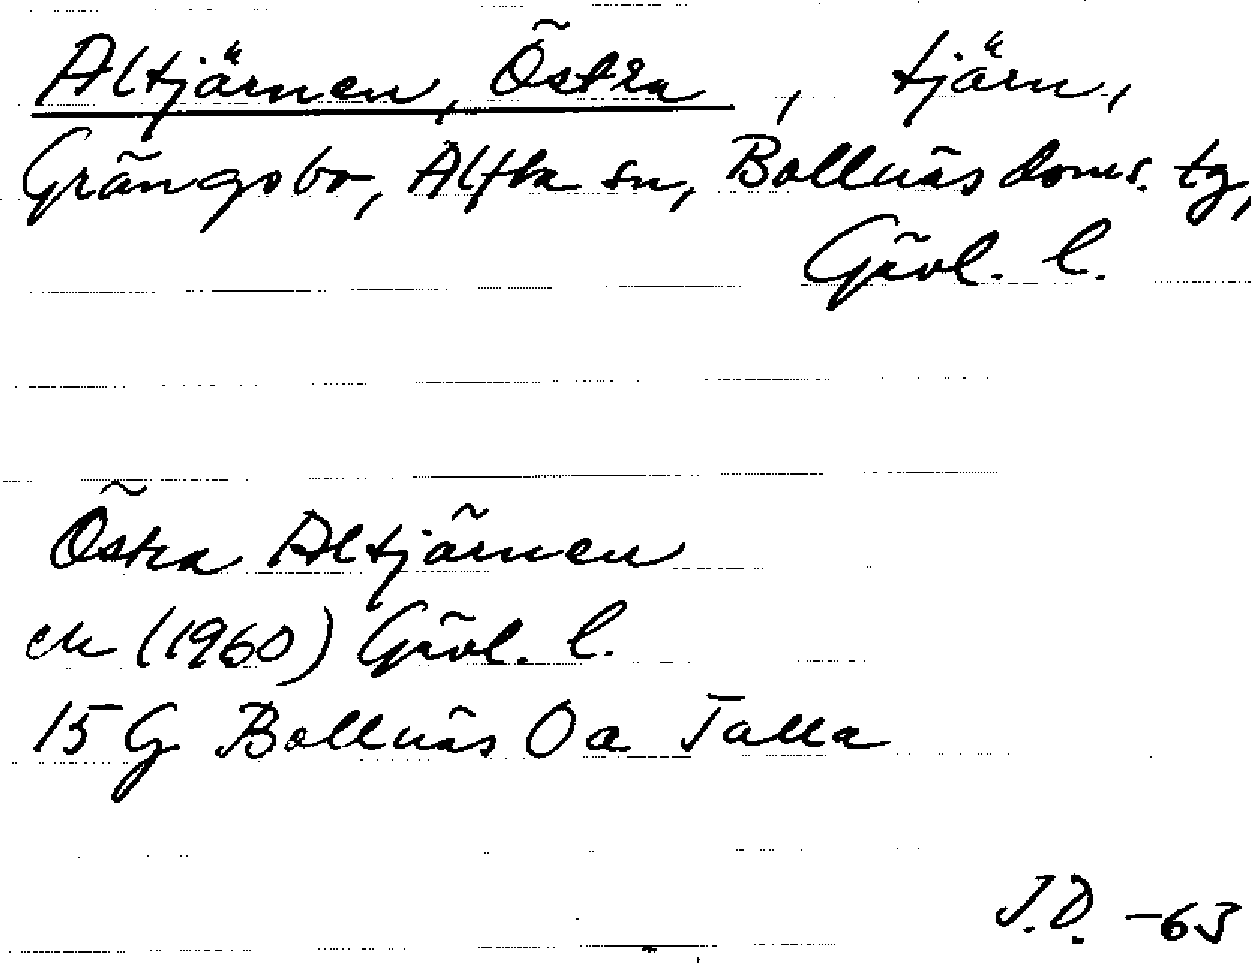 Altjärnen, Östra, tjärn,
Grängsbo, Alfta sn, Bollnäs doms. tg,
Gävl. l.
Östra Altjärnen
ek (1960) Gävl. l.
15 G Bollnäs O a Talla
J.D. -63